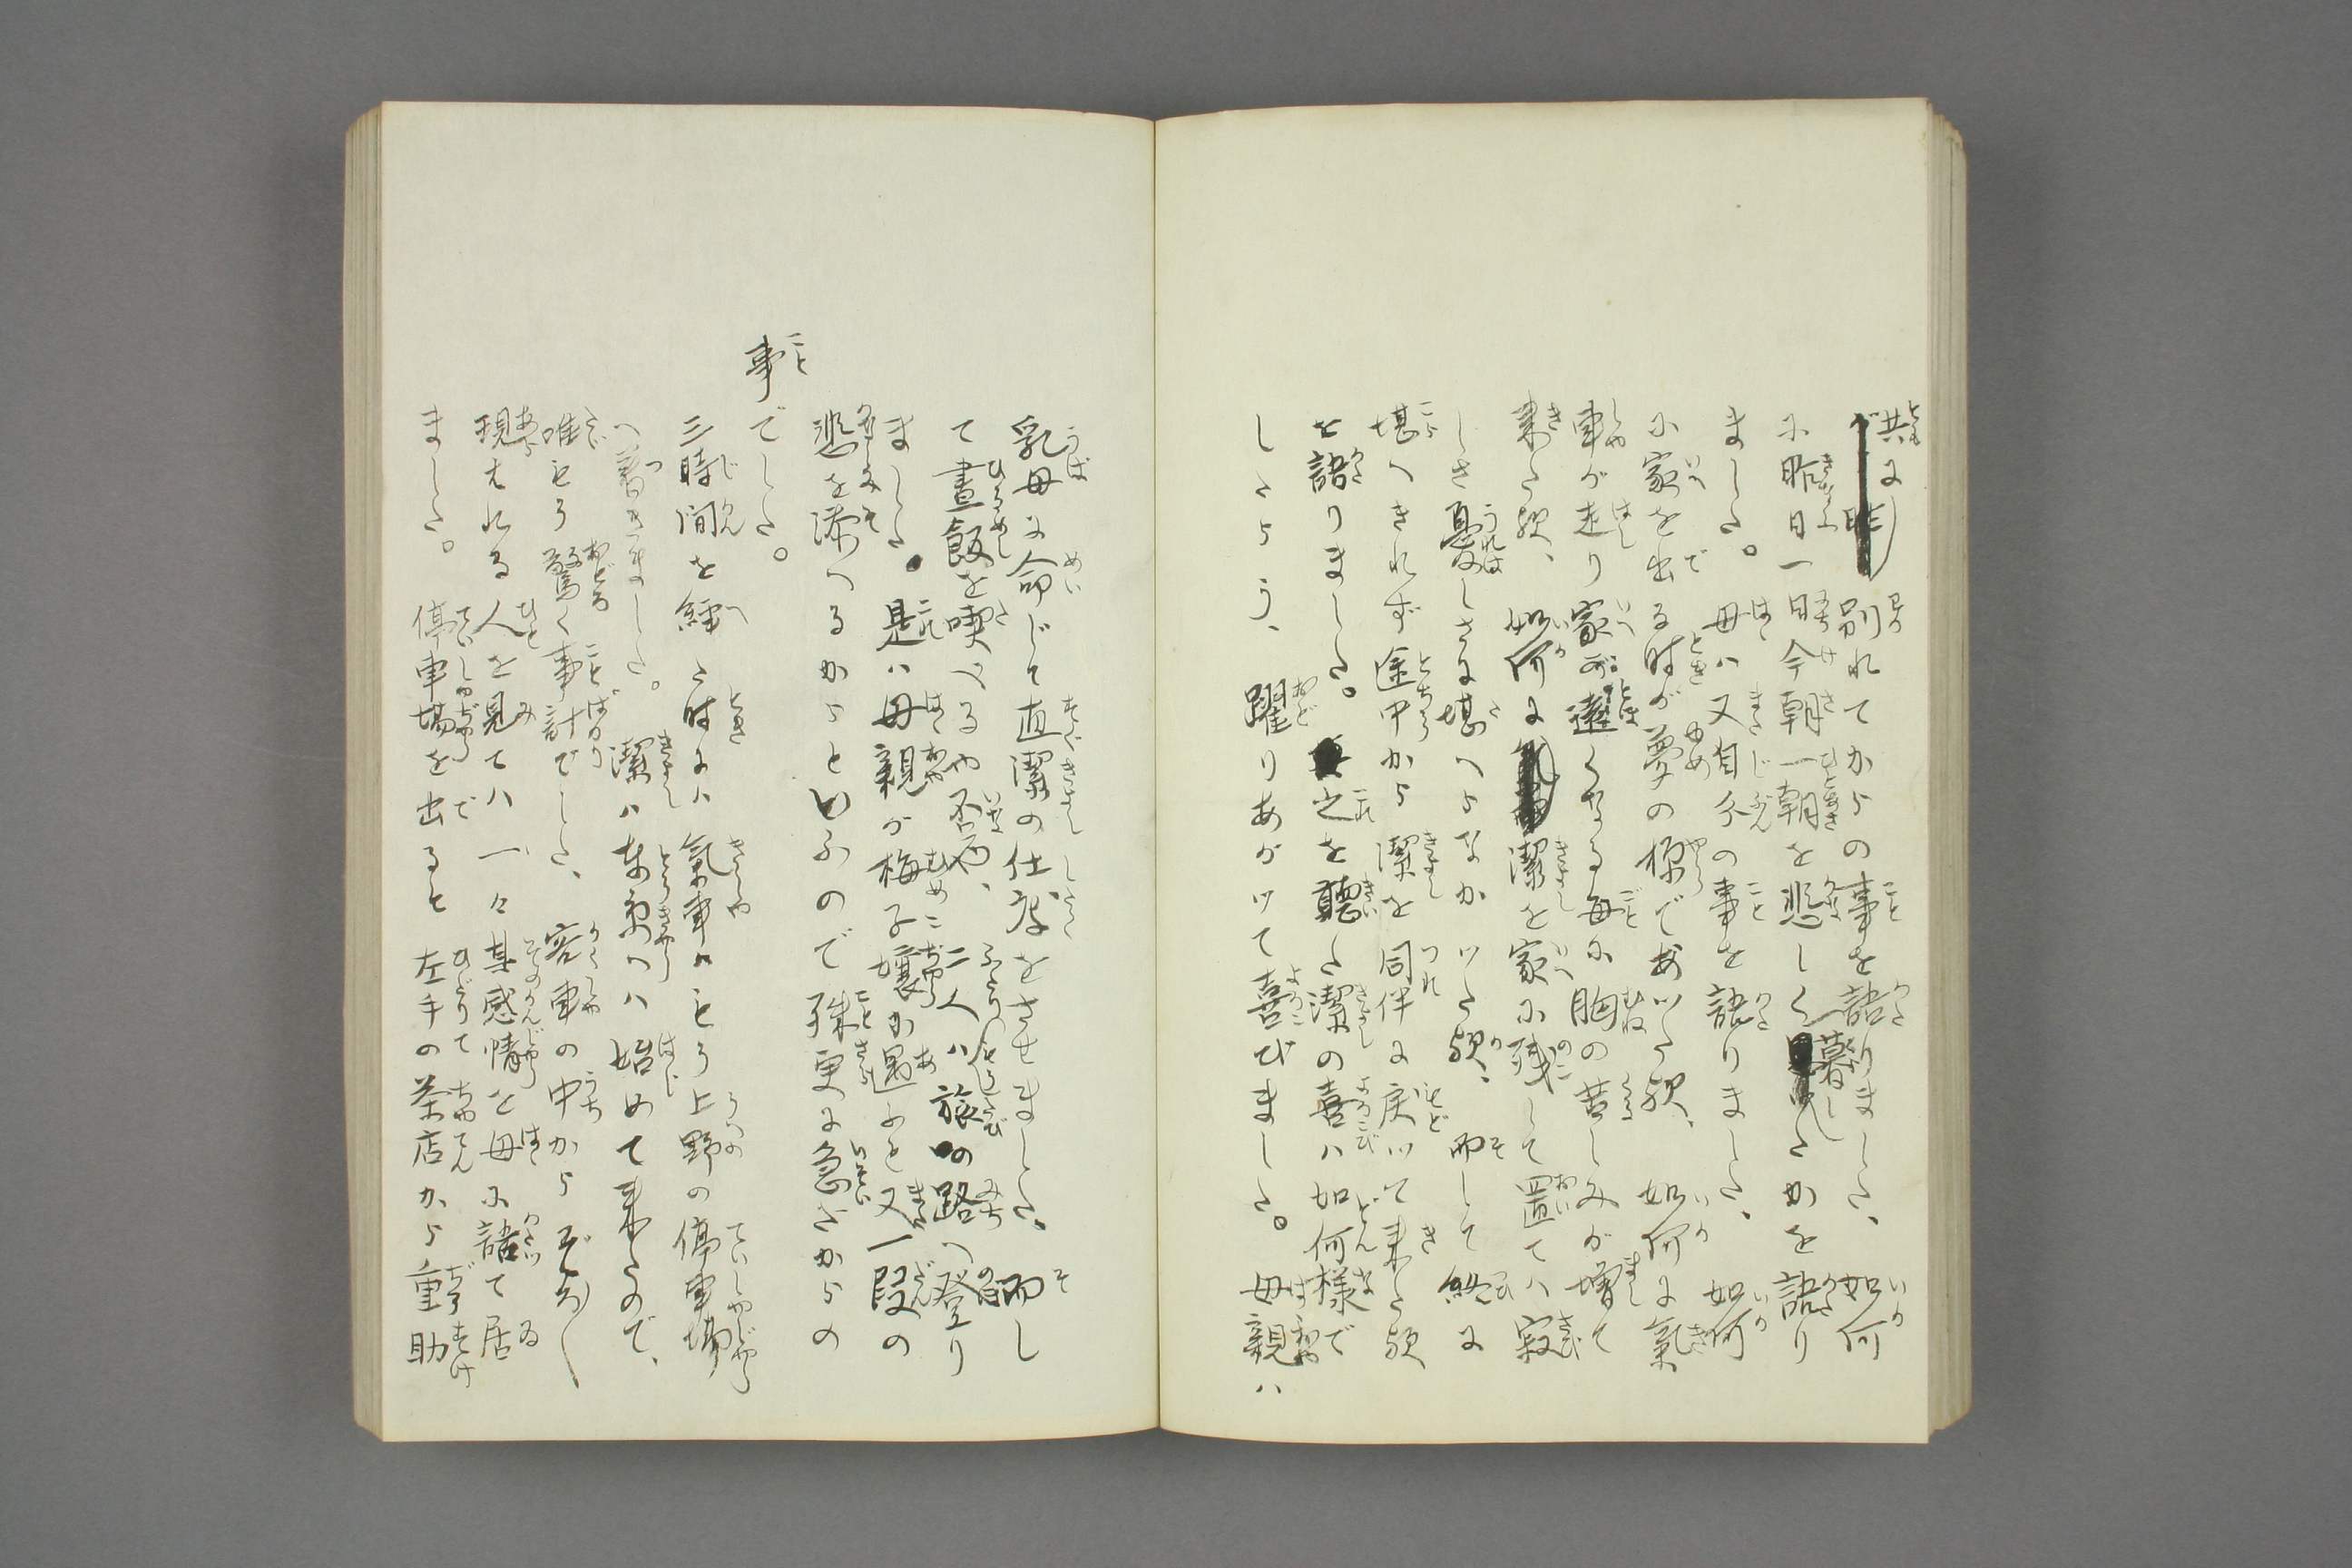 共に別れてからの事を語りました、如何
に昨日一日今朝一朝を悲しく暮したかを語り
ました。母ハ又自分の事を語りました、如何
に家を出る時が夢の様であつた歟、如何に氣
車が走り家が遠くなる毎に胸の苦しみが増て
来た歟、如何に潔を家に残して置てハ寂
しき憂しさに堪へらなかつた歟、而して終に
堪へきれず途中から潔を同伴に戻つて来た歟
を語りました。之を聽た潔の喜ハ如何様で
したらう、躍りあがつて喜びました。母親ハ
乳母に命じて直潔の仕度をさせました、而し
て晝飯を喫べるや否や、二人ハ旅の路へ登り
ました。是ハ母親が梅子孃か遇ふと又一段の
悲を添へるからといふので殊更に急ぎからの
事でした。
三時間を經た時にハ氣車ハもう上野の停車場
へ着きました。潔ハ東京へハ始めて来たので、
唯もう驚く事計でした、客車の中からぞろ〳〵
現はれる人を見てハ一々其感情を母に語て居
ました。停車場を出ると左手の茶店から重助